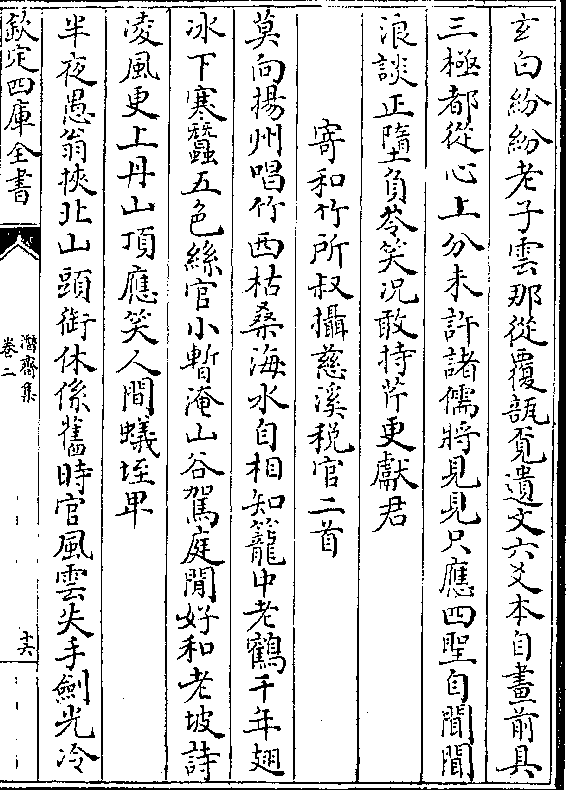 玄白紛紛老子雲那從覆瓿覓遺文六爻本自畫前具
三極都從心上分未許諸儒將見見只應四聖自聞聞
浪談正墮負苓笑況敢持芹更獻君
寄和竹所叔攝慈溪稅官二首
莫向揚州唱竹西枯桑海水自相知籠中老鶴千年翅
冰下寒蠶五色絲官小暫淹山谷駕庭閒好和老坡詩
凌風更上丹山頂應笑人間蟻垤卑
半夜愚翁挾北山頭銜休係舊時官風雲失手劍光冷
欽定四庫全書
潛齋集
卷二
十六